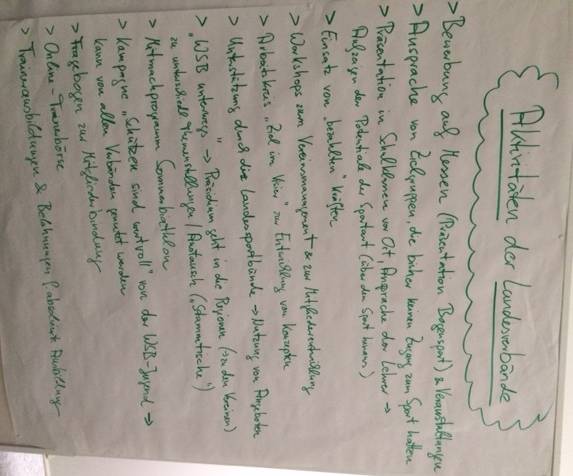 Aktivitäten der Landesverbände
> Bewerbung auf Messen (Präsentation Bogensport) & Veranstaltungen
> Ansprache von Zielgruppen, die bisher keinen Zugang zum Sport hatten
> Präsentation in Schulklassen vor Ort, Ansprache der Lehrer →
Aufzeigen der Potentiale der Sportart (über den Sport hinaus)
> Einsatz von "bezahlten" Kräften
> Workshops zum Vereinsmanagement & zur Mitgliederentwicklung
> Arbeitskreis "Ziel im Visier" zur Entwicklung von Konzepten
> Unterstützung durch die Landessportbünde → Nutzung von Angeboten
> "WSB unterwegs" → Präsidium geht in die Regionen (→ zu den Vereinen)
zu unterschiedl. Themenstellungen / Austausch ("Stammtische")
> Mitmachprogramm Sommerbiathlon
> Kampagne "Schützen sind wertvoll" von der WSB-Jugend →
kann von allen Verbänden genutzt werden
> Fragebogen zur Mitgliederbindung
> Online-Trainerbörse
> Trainerausbildungen & Belohnungen f. absolvierte Ausbildung